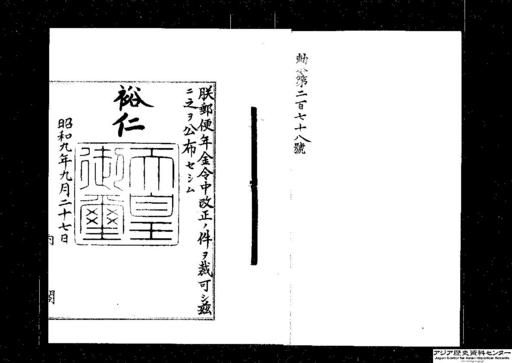 勅令第二百七十八號
朕郵便年金令中改正ノ件ヲ裁可シ茲
ニ之ヲ公布セシム
裕仁
天皇
御璽
昭和九年九月二十七日
内閣
アジア歴史資料センター
Japan Center for Asian Historical Records